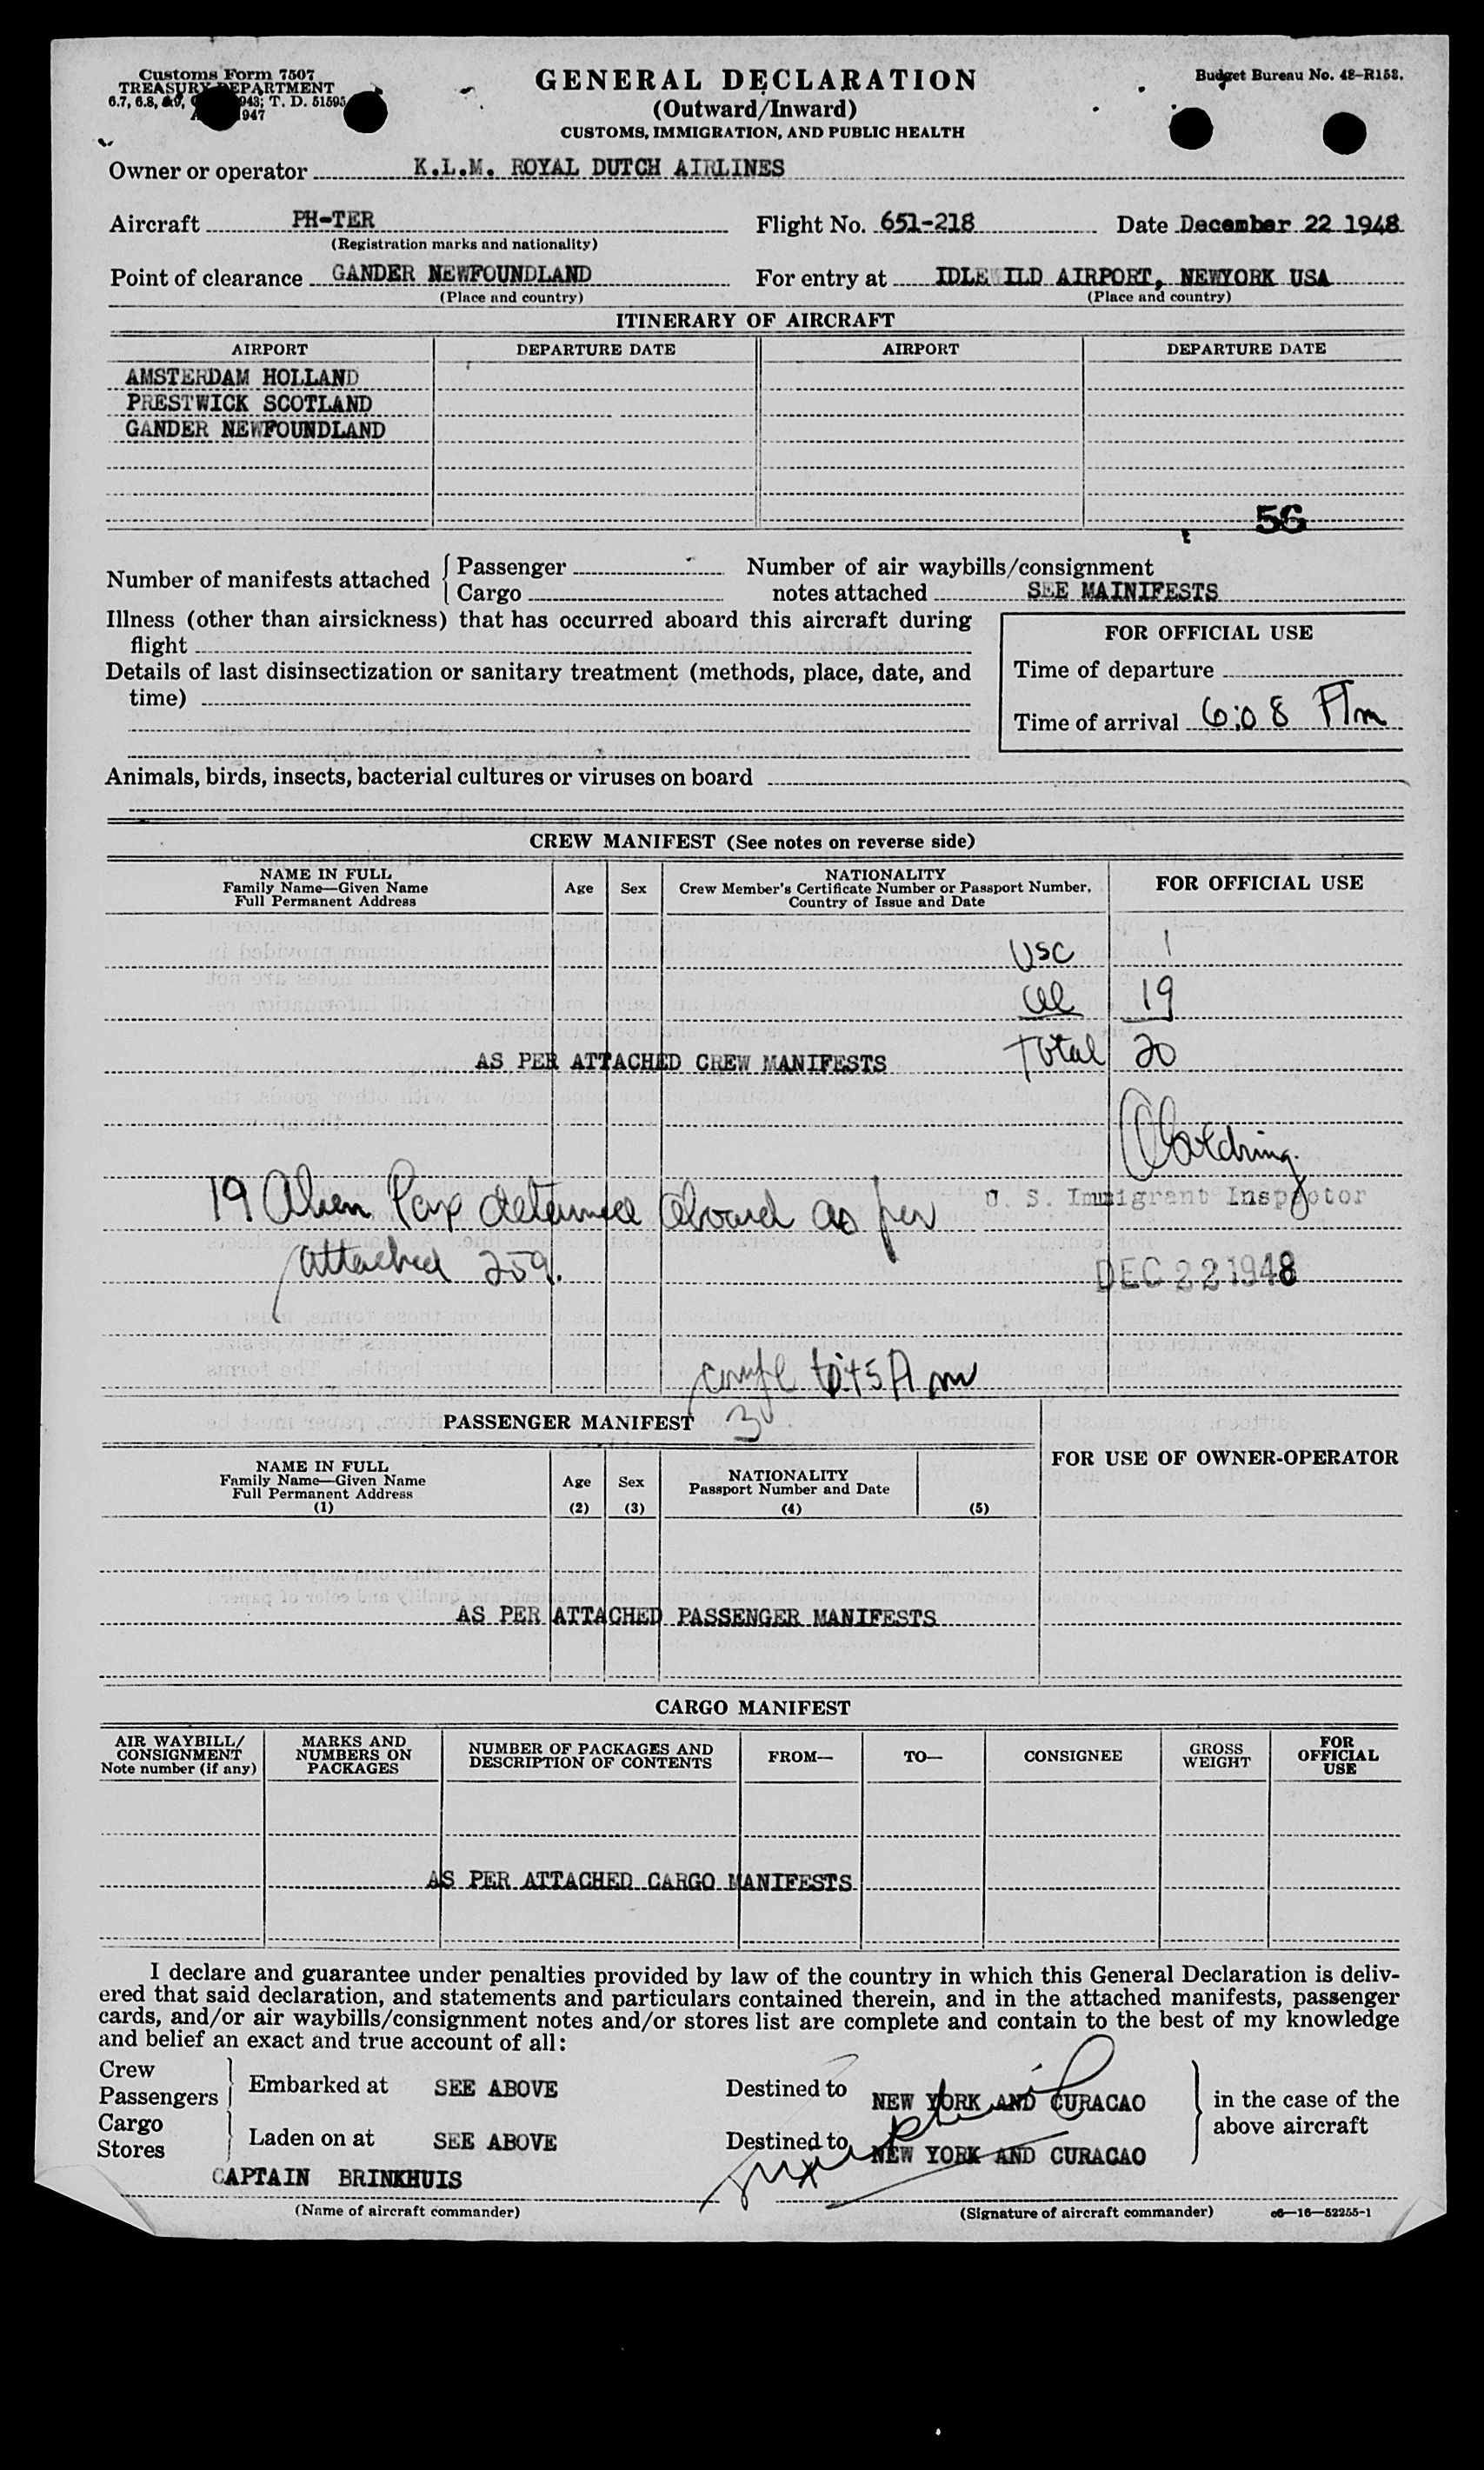 Customs Form 7507
TREASURY DEPARTMENT
6.7, 6.8, 943; T. D. 51595
1947
GENERAL DECLARATION
(Outward/Inward)
CUSTOMS, IMMIGRATION, AND PUBLIC HEALTH
Budget Bureau No. 48-R158.
Owner or operator K.L.M. ROYAL DUTCH AIRLINES
Aircraft PH-TER Flight No. 651-218 Date December 22 1948
(Registration marks and nationality)
Point of clearance GANDER NEWFOUNDLAND For entry at IDLEWILD AIRPORT, NEWYORK USA
(Place and country) (Place and country)
ITINERARY OF AIRCRAFT
AIRPORT DEPARTURE DATE AIRPORT DEPARTURE DATE
AMSTERDAM HOLLAND
PRESTWICK SCOTLAND
GANDER NEWFOUNDLAND
56
Number of manifests attached { Passenger Number of air waybills/consignment
Cargo notes attached SEE MAINIFESTS
Illness (other than airsickness) that has occurred aboard this aircraft during
flight
Details of last disinsectization or sanitary treatment (methods, place, date, and
time)
FOR OFFICIAL USE
Time of departure
Time of arrival 6:08 Am
Animals, birds, insects, bacterial cultures or viruses on board
CREW MANIFEST (See notes on reverse side)
NAME IN FULL
Family Name—Given Name
Full Permanent Address
Age Sex
NATIONALITY
Crew Member's Certificate Number or Passport Number,
Country of Issue and Date
FOR OFFICIAL USE
USC 1
19
AS PER ATTACHED CREW MANIFESTS Total 20
19 Alien Pax detained aboard as per
U. S. Immigrant Inspector
attached 259.
DEC 22 1948
Am
PASSENGER MANIFEST 3
FOR USE OF OWNER-OPERATOR
NAME IN FULL
Family Name—Given Name
Full Permanent Address
(1)
Age
(2)
Sex
(3)
NATIONALITY
Passport Number and Date
(4) (5)
AS PER ATTACHED PASSENGER MANIFESTS
CARGO MANIFEST
AIR WAYBILL/
CONSIGNMENT
Note number (if any)
MARKS AND
NUMBERS ON
PACKAGES
NUMBER OF PACKAGES AND
DESCRIPTION OF CONTENTS
FROM— TO— CONSIGNEE
GROSS
WEIGHT
FOR
OFFICIAL
USE
AS PER ATTACHED CARGO MANIFESTS
I declare and guarantee under penalties provided by law of the country in which this General Declaration is deliv-
ered that said declaration, and statements and particulars contained therein, and in the attached manifests, passenger
cards, and/or air waybills/consignment notes and/or stores list are complete and contain to the best of my knowledge
and belief an exact and true account of all:
Crew
Passengers } Embarked at SEE ABOVE Destined to NEW YORK AND CURACAO
Cargo
Stores } Laden on at SEE ABOVE Destined to NEW YORK AND CURACAO
in the case of the
above aircraft
CAPTAIN BRINKHUIS
(Name of aircraft commander) (Signature of aircraft commander) c6—16—52255-1